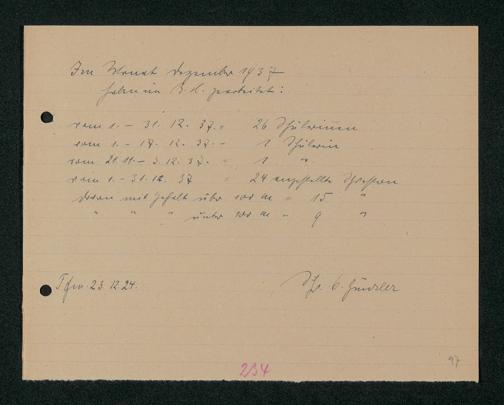 Im Monat Dezember 1937
haben im B. H. gearbeitet:
vom 1. - 31. 12. 37. = 26 Schülerinnen
vom 1. - 17. 12. 37. - 1 Schülerin
vom 21. 11. - 3. 12. 37. - 1 "
vom 1. - 31. 12. 37 " 24 angestellte Schwestern
davon mit Gehalt über 100 M " 15 "
" " " unter 100 M " 9 "
23.12.
234
97